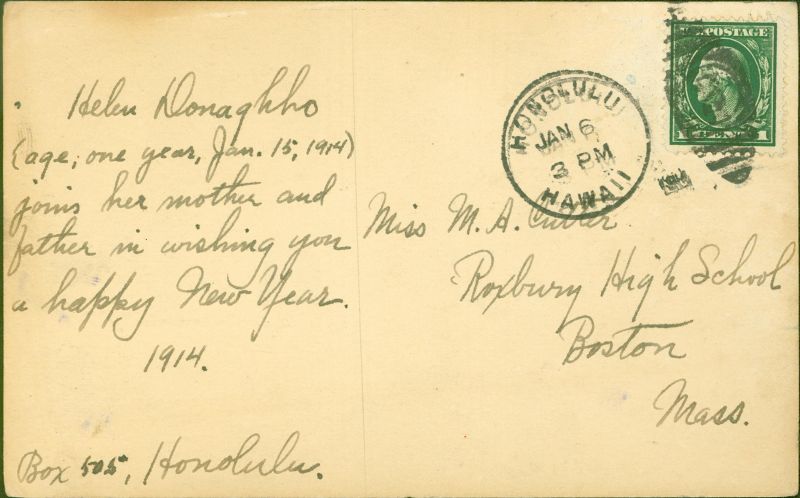 Helen Donaghho
(age, one year, Jan. 15, 1914)
joins her mother and
father in wishing you
a happy New Year.
1914.
Box 505, Honolulu.
HONOLULU
JAN 6
3 PM
HAWAII
U.S. POSTAGE
1 1
Miss M. A. Cutler
Roxbury High School
Boston
Mass.